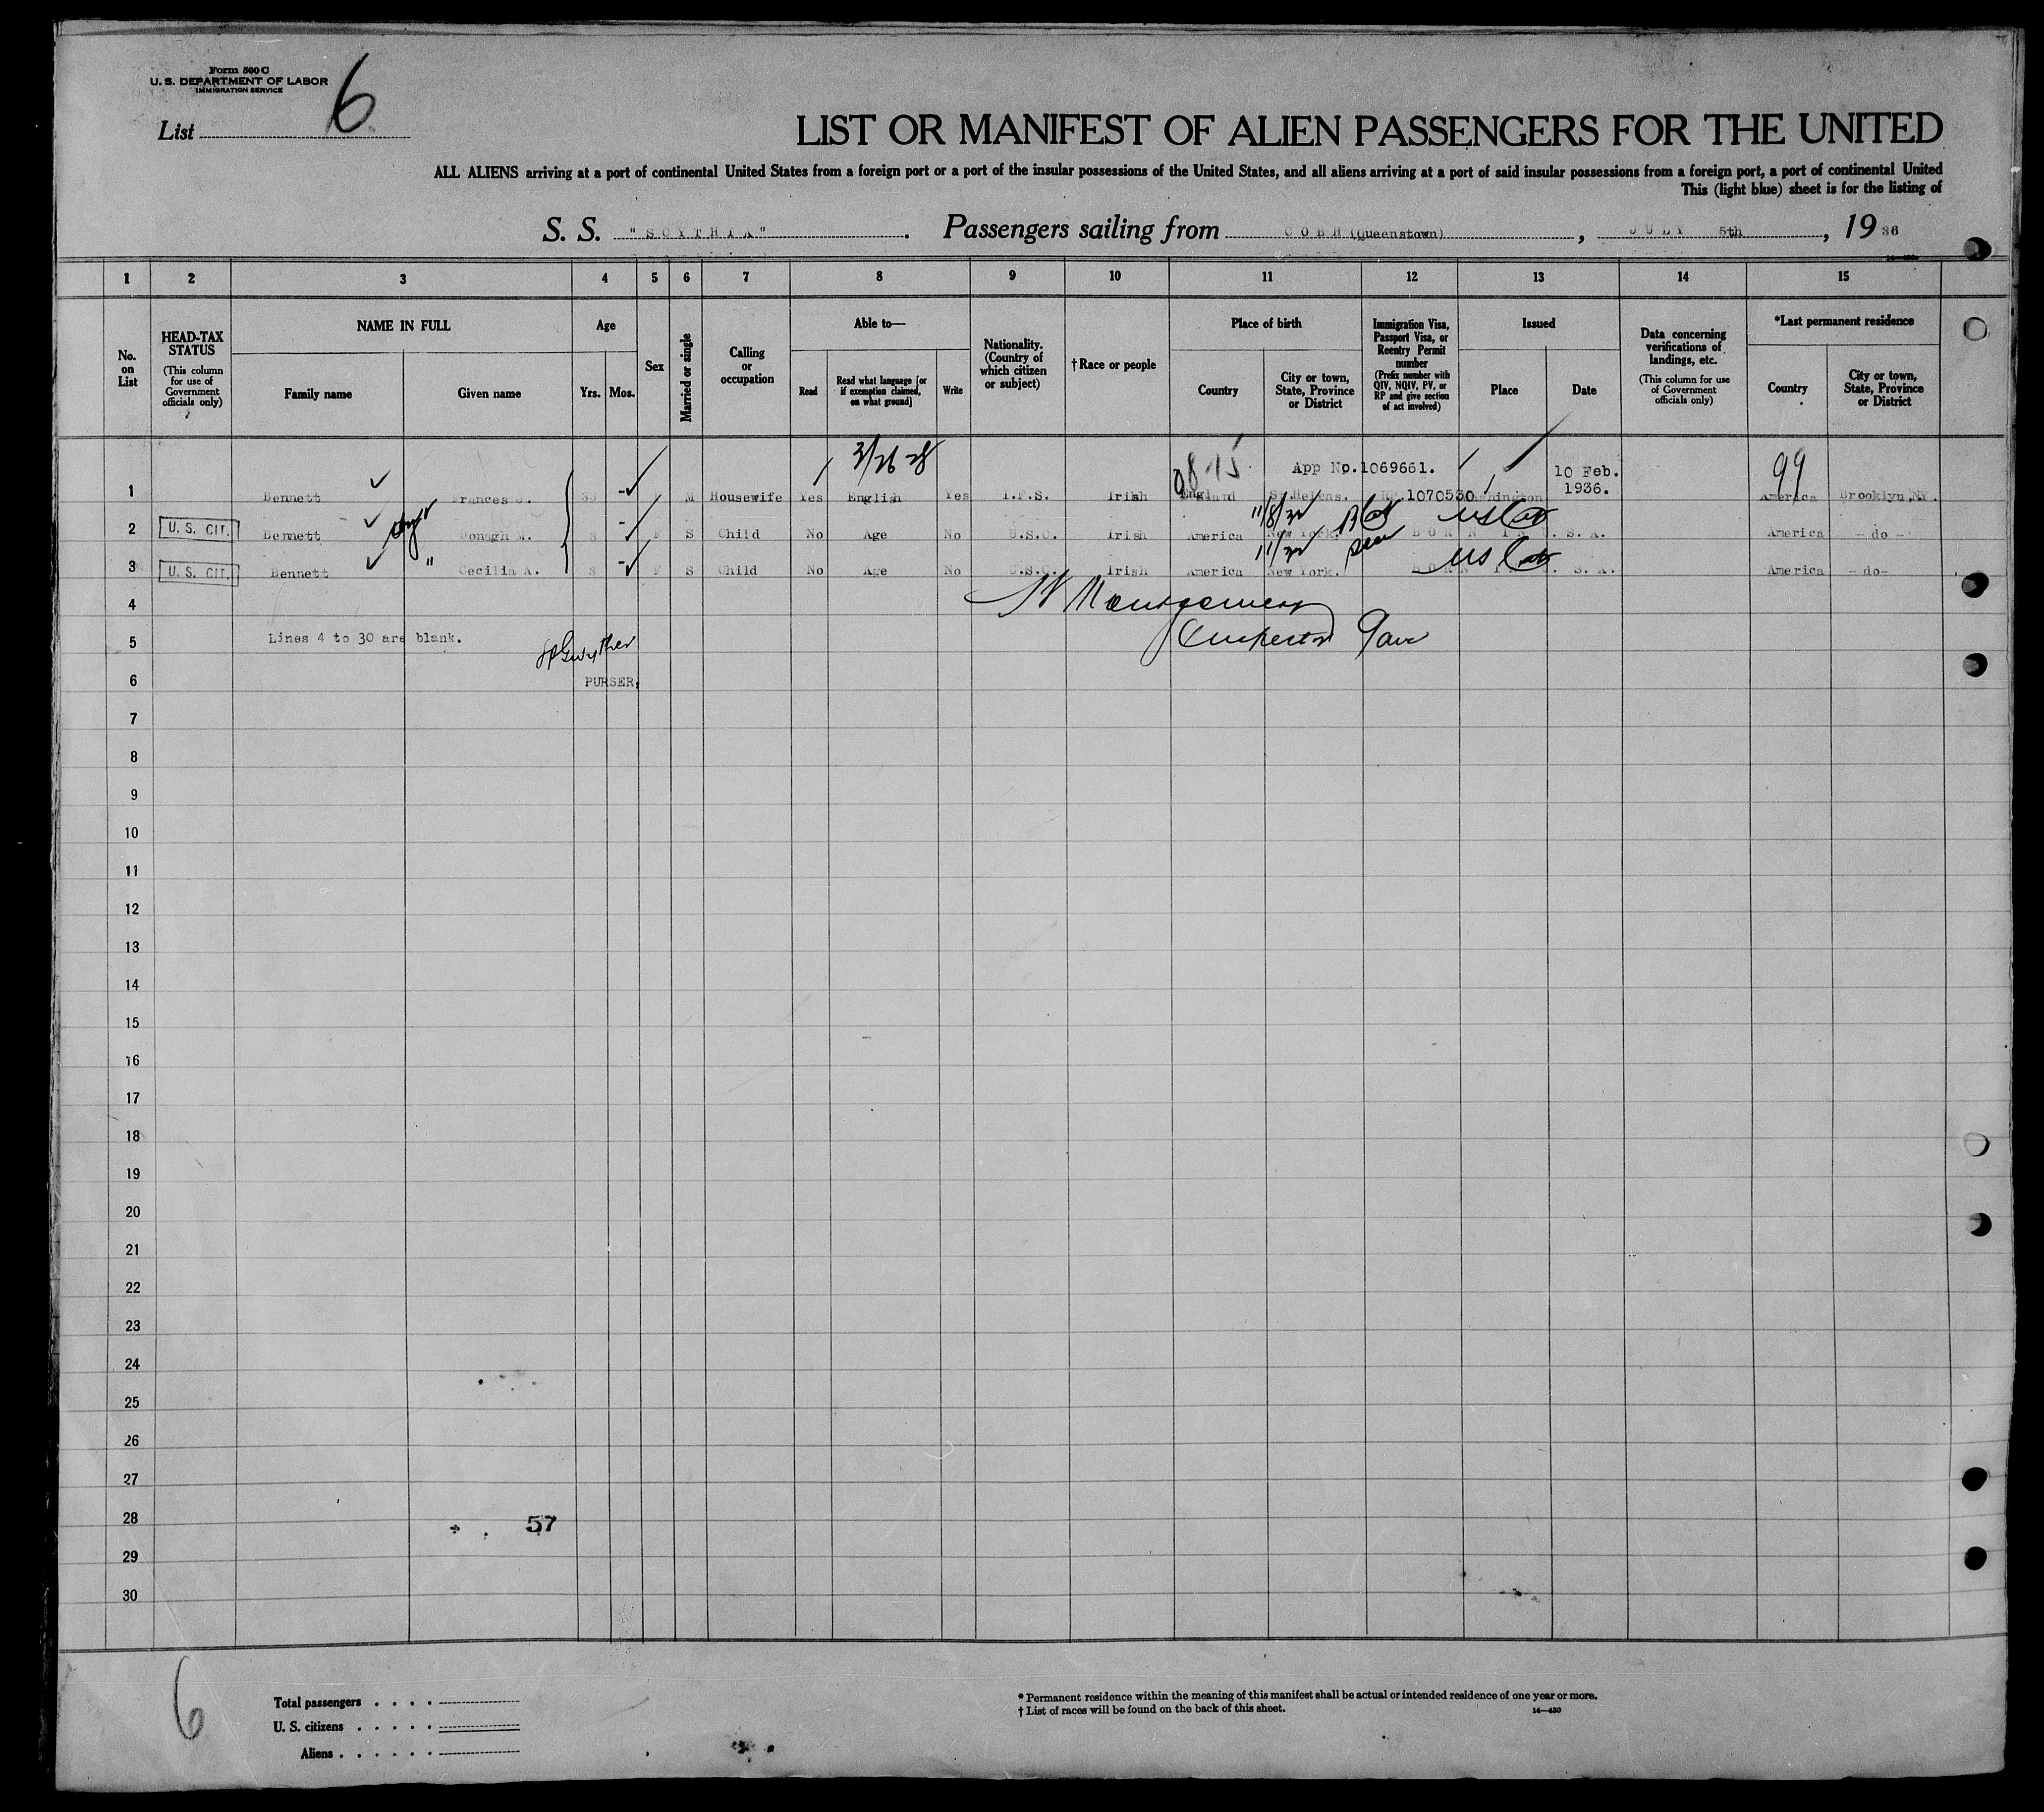 Form 500 C
U. S. DEPARTMENT OF LABOR
IMMIGRATION SERVICE
List 6
LIST OR MANIFEST OF ALIEN PASSENGERS FOR THE UNITED
ALL ALIENS arriving at a port of continental United States from a foreign port or a port of the insular possessions of the United States, and all aliens arriving at a port of said insular possessions from a foreign port, a port of continental United
This (light blue) sheet is for the listing of
S. S. "SCYTHIA". Passengers sailing from COBH (Queenstown), JULY 5th, 19 36
14—430
1 2 3 4 5 6 7 8 9 10 11 12 13 14 15
No. on List
HEAD-TAX STATUS (This column for use of Government officials only)
NAME IN FULL
Family name Given name
Age
Yrs. Mos.
Sex
Married or single
Calling or occupation
Able to—
Read Read what language [or if exemption claimed, on what ground] Write
Nationality. (Country of which citizen or subject)
† Race or people
Place of birth
Country City or town, State, Province or District
Immigration Visa, Passport Visa, or Reentry Permit number (Prefix number with QIV, NQIV, PV, or RP and give section of act involved)
Issued
Place Date
Data concerning verifications of landings, etc. (This column for use of Government officials only)
*Last permanent residence
Country City or town, State, Province or District
3/26 28 App No.1069661. 10 Feb. 1936. 99
1 Bennett Frances J. 33 M Housewife Yes English Yes I.F.S. Irish England St Helens. RP.1070530 Washington America Brooklyn NY.
11/8/32 US Cit
2 U. S. CIT. Bennett Donagh M. 3 F S Child No Age No U.S.C. Irish America New York. BORN IN U. S. A. America - do -
11/32 seen US Cit
3 U. S. CIT. Bennett " Cecilia A. 3 F S Child No Age No U.S.C. Irish America New York. BORN IN U. S. A. America - do-
4 Montgomery
5 Lines 4 to 30 are blank. Inspector
6 PURSER.
7
8
9
10
11
12
13
14
15
16
17
18
19
20
21
22
23
24
25
26
27
28 57
29
30
6
Total passengers . . . .
U. S. citizens . . . . .
Aliens . . . . . .
* Permanent residence within the meaning of this manifest shall be actual or intended residence of one year or more.
† List of races will be found on the back of this sheet. 14—430